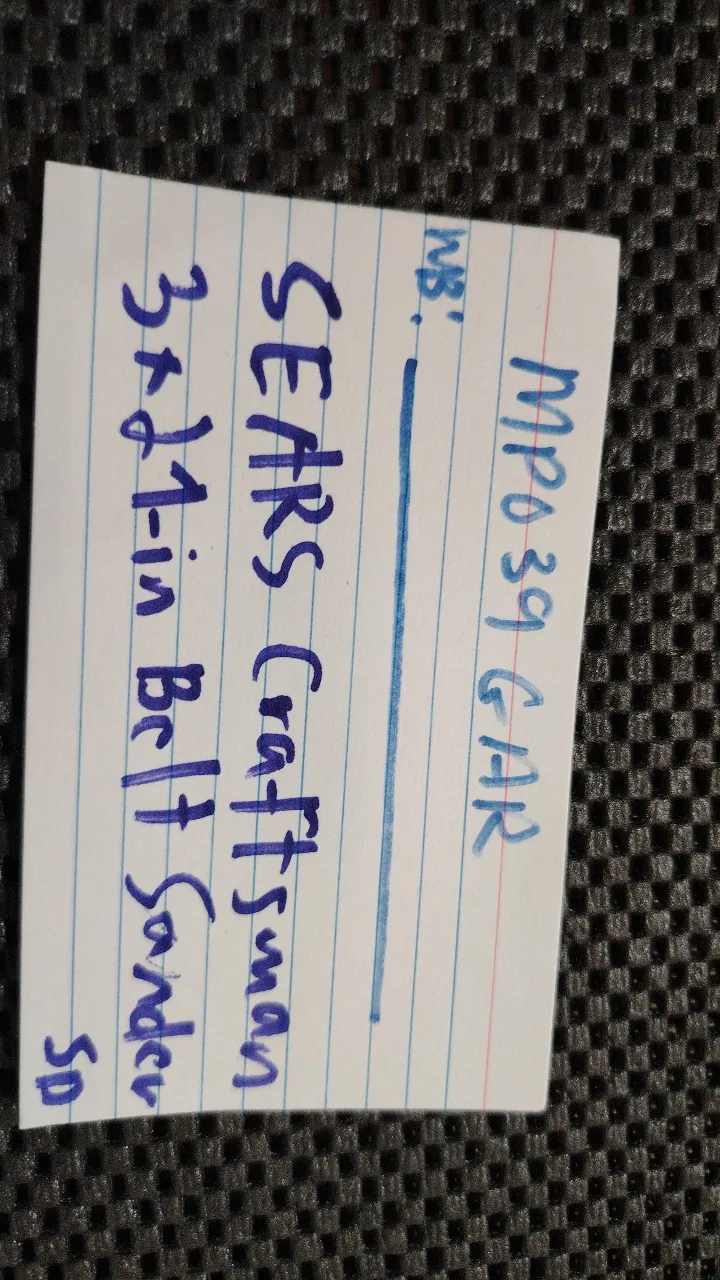 MP039GAR
WB:
SEARS Craftsman
3x21-in Belt Sander
SD